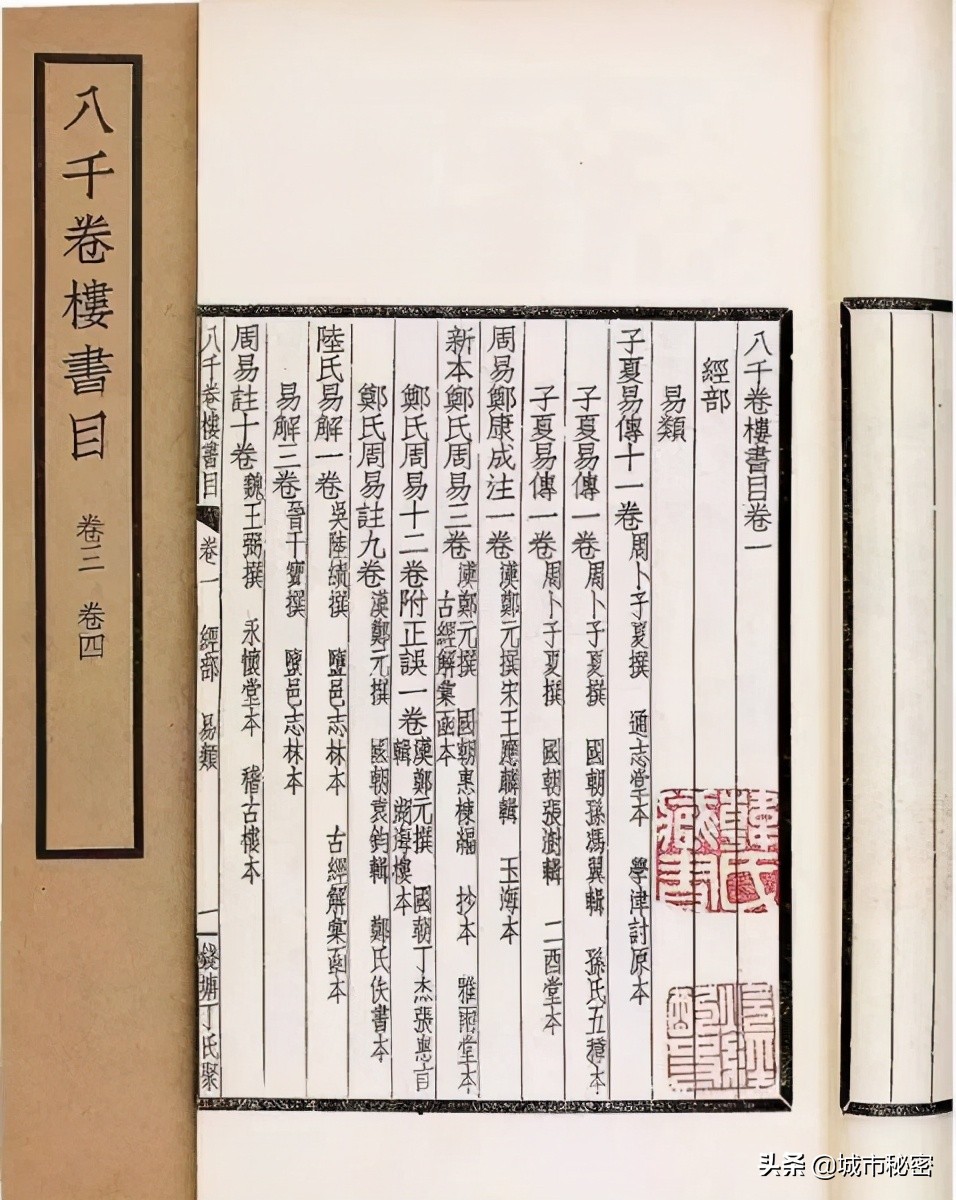 八千卷樓書目 卷三 卷四
八千卷樓書目卷一
經部
易類
子夏易傳十一卷 周卜子夏撰 通志堂本 學津討原本
子夏易傳一卷 周卜子夏撰 國朝孫馮翼輯 孫氏五種本
子夏易傳一卷 周卜子夏撰 國朝張澍輯 二酉堂本
周易鄭康成注一卷 漢鄭元撰宋王應麟輯 玉海本
新本鄭氏周易三卷 漢鄭元撰 國朝惠棟編 抄本 雅雨堂本
古經解彙函本
鄭氏周易十二卷附正誤一卷 漢鄭元撰 國朝丁杰張惠言
輯 湖海樓本
鄭氏周易註九卷 漢鄭元撰 國朝袁鈞輯 鄭氏佚書本
陸氏易解一卷 吳陸績撰 鹽邑志林本 古經解彙函本
易解三卷 晉干寶撰 鹽邑志林本
周易註十卷 魏王弼撰 永懷堂本 稽古樓本
八千卷樓書目 卷一 經部 易類 一 錢塘丁氏聚
头条 @城市秘密